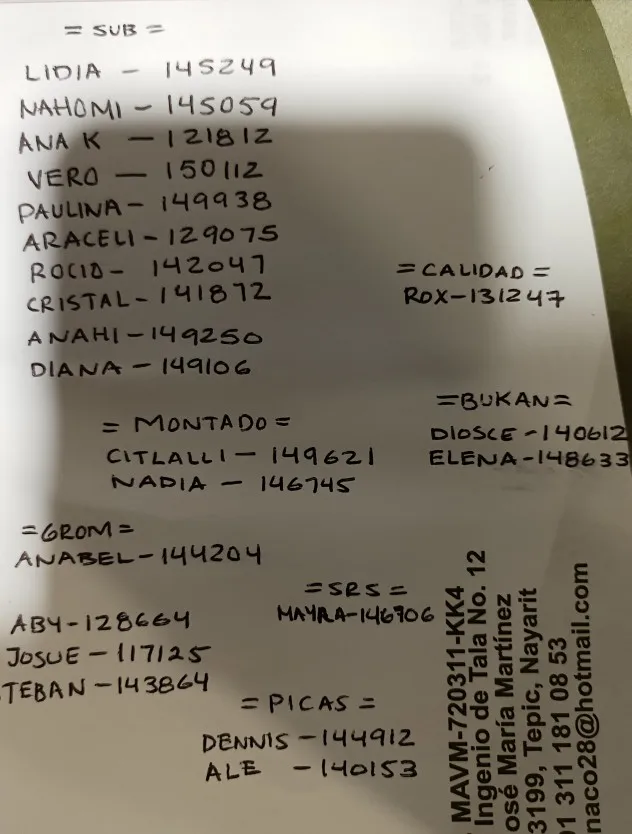 = SUB =
LIDIA - 145249
NAHOMI - 145059
ANA K - 121812
VERO - 150112
PAULINA - 149938
ARACELI - 129075
ROCIO - 142047
CRISTAL - 141872
ANAHI - 149250
DIANA - 149106
= CALIDAD =
ROX - 131247
= MONTADO =
CITLALLI - 149621
NADIA - 146745
= BUKAN =
DIOSCE - 140612
ELENA - 148633
= GROM =
ANABEL - 144204
ABY - 128664
JOSUE - 117125
TEBAN - 143864
= SRS =
MAYRA - 146906
= PICAS =
DENNIS - 144912
ALE - 140153
MAVM-720311-KK4
Ingenio de Tala No. 12
osé María Martínez
3199, Tepic, Nayarit
1 311 181 08 53
naco28@hotmail.com